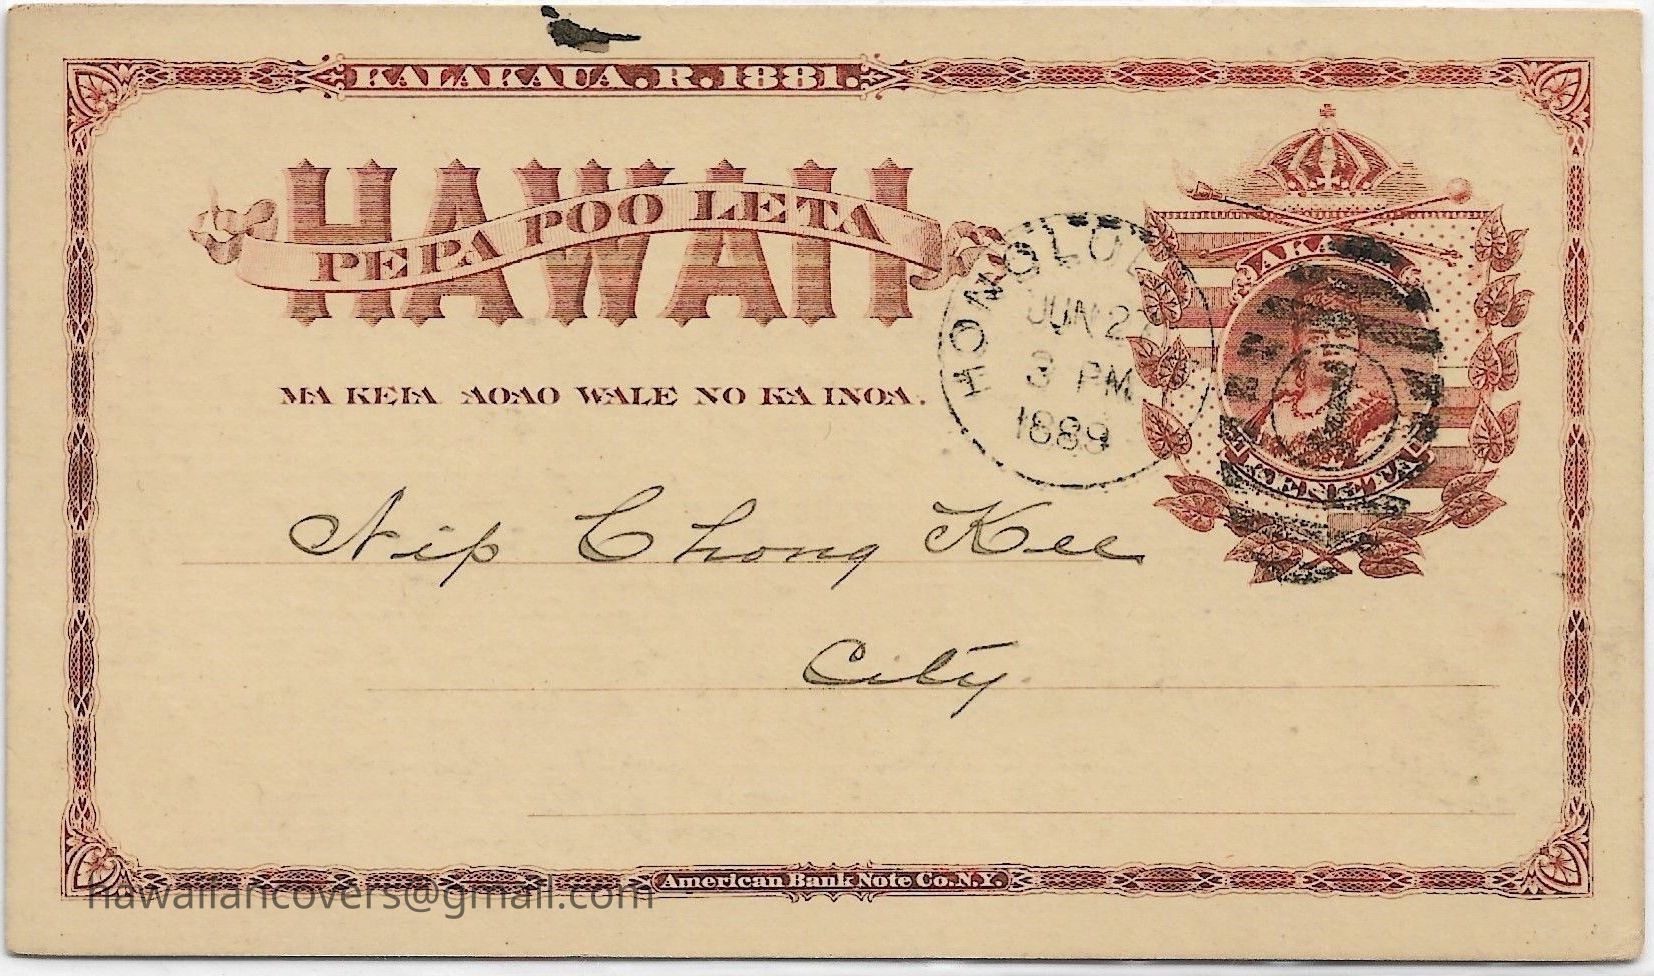 KALAKAUA.R.1881.
HAWAII
PEPA POO LETA
MA KEIA AOAO WALE NO KA INOA.
HONOLUL
JUN 27
3 PM
1889
AKAHI
1
KENETA
Nip Chong Kee
City
American Bank Note Co. N.Y.
hawaiiancovers@gmail.com